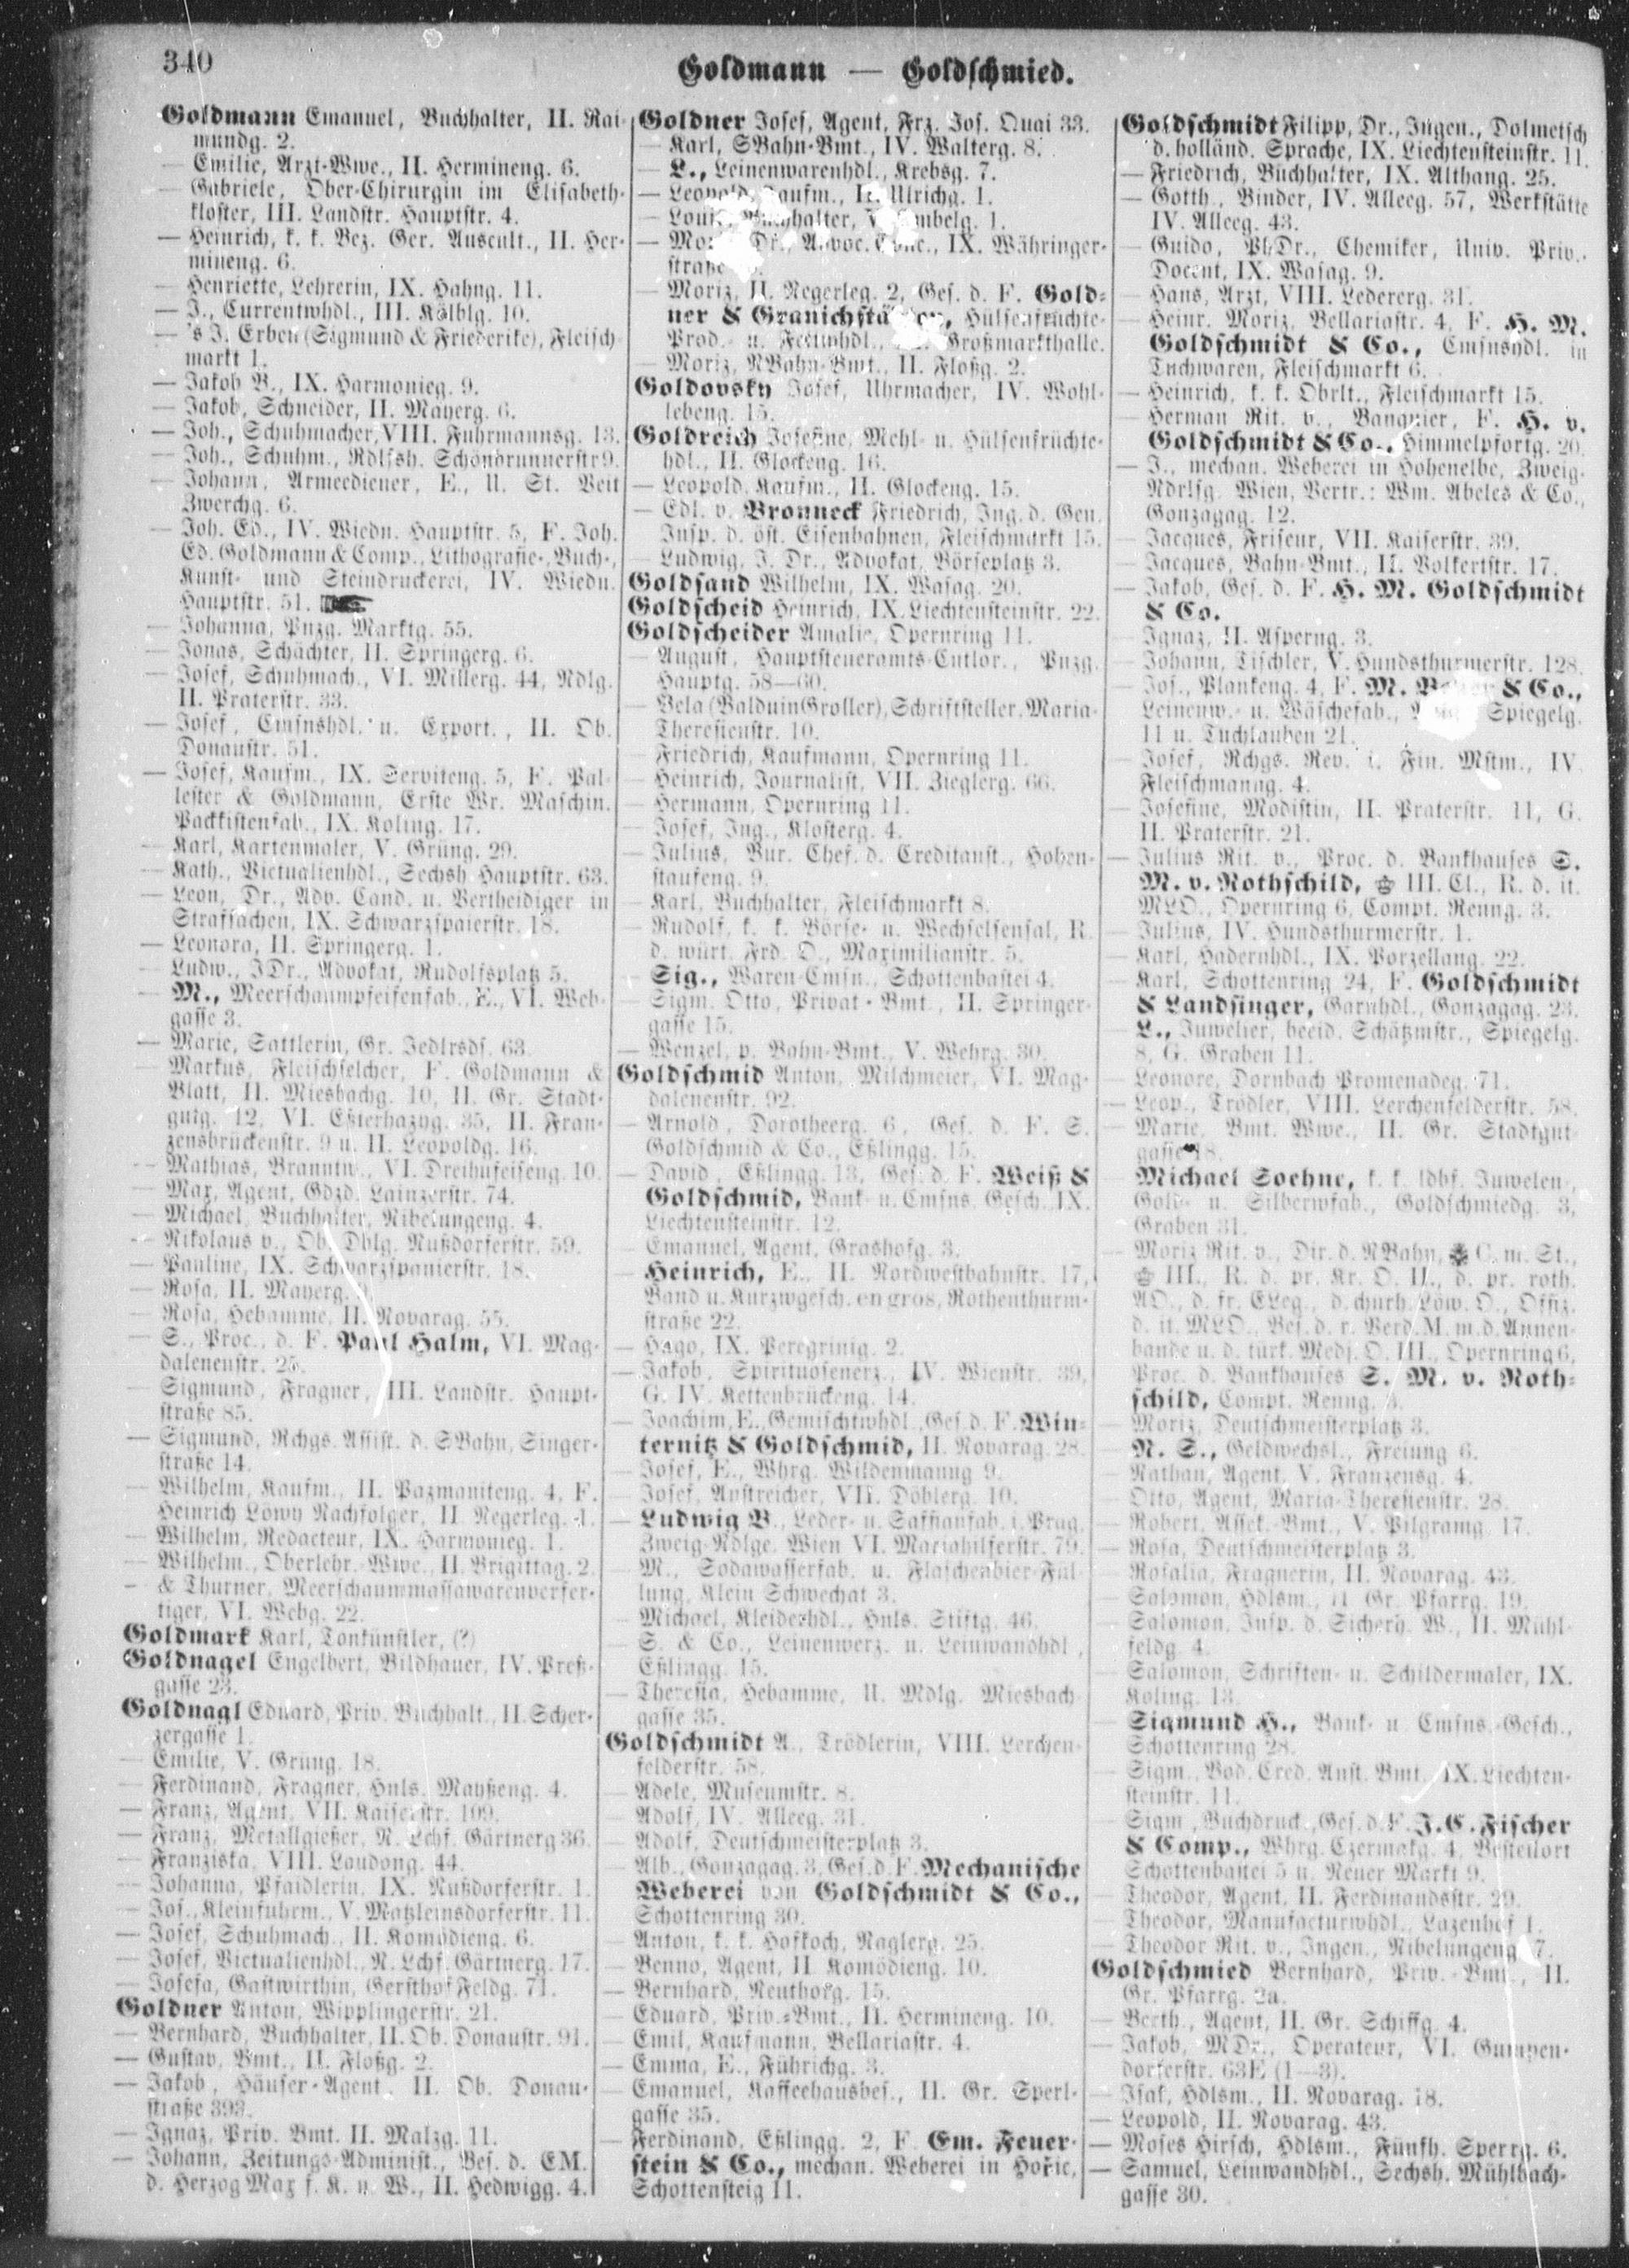 340
Goldmann — Goldschmied.
Goldmann Emanuel, Buchhalter, II. Rai-
mundg. 2.
— Emilie, Arzt-Wwe., II. Hermineng. 6.
— Gabriele, Ober-Chirurgin im Elisabeth-
kloster, III. Landstr. Hauptstr. 4.
— Heinrich, k. k. Bez. Ger. Auscult., II. Her-
mineng. 6.
— Henriette, Lehrerin, IX. Hahng. 11.
— J., Currentwhdl., III. Kölblg. 10.
— 's J. Erben (Sigmund & Friederike), Fleisch-
markt 1.
— Jakob B., IX. Harmonieg. 9.
— Jakob, Schneider, II. Mayerg. 6.
— Joh., Schuhmacher, VIII. Fuhrmannsg. 13.
— Joh., Schuhm., Rdlfsh. Schönbrunnerstr 9.
— Johann, Armeediener, E., U. St. Veit
Zwerchg. 6.
— Joh. Ed., IV. Wiedn. Hauptstr. 5, F. Joh.
Ed. Goldmann & Comp., Lithografie-, Buch-,
Kunst- und Steindruckerei, IV. Wiedn.
Hauptstr. 51.
— Johanna, Pnzg. Marktg. 55.
— Jonas, Schächter, II. Springerg. 6.
— Josef, Schuhmach., VI. Millerg. 44, Ndlg.
II. Praterstr. 33.
— Josef, Cmsnshdl. u. Export., II. Ob.
Donaustr. 51.
— Josef, Kaufm., IX. Serviteng. 5, F. Pal-
lester & Goldmann, Erste Wr. Maschin.
Packkistenfab., IX. Koling. 17.
— Karl, Kartenmaler, V. Grüng. 29.
— Kath., Victualienhdl., Sechsh. Hauptstr. 63.
— Leon, Dr., Adv. Cand. u. Vertheidiger in
Strafsachen, IX. Schwarzspaierstr. 18.
— Leonora, II. Springerg. 1.
— Ludw., JDr., Advokat, Rudolfsplatz 5.
— M., Meerschaumpfeifenfab., E., VI. Web-
gasse 3.
— Marie, Sattlerin, Gr. Jedlrsdf. 63.
— Markus, Fleischselcher, F. Goldmann &
Blatt, II. Miesbachg. 10, II. Gr. Stadt-
gutg. 12, VI. Eßterhazyg. 35, II. Fran-
zensbrückenstr. 9 u. II. Leopoldg. 16.
— Mathias, Branntw., VI. Dreihufeiseng. 10.
— Max, Agent, Gdzd. Lainzerstr. 74.
— Michael, Buchhalter, Nibelungeng. 4.
— Nikolaus v., Ob. Dblg. Nußdorferstr. 59.
— Pauline, IX. Schwarzspanierstr. 18.
— Rosa, II. Mayerg.
— Rosa, Hebamme, II. Novarag. 55.
— S., Proc., d. F. Paul Halm, VI. Mag-
dalenenstr. 25.
— Sigmund, Fragner, III. Landstr. Haupt-
straße 85.
— Sigmund, Rchgs. Assist. d. SBahn, Singer-
straße 14.
— Wilhelm, Kaufm., II. Pazmaniteng. 4, F.
Heinrich Löwy Nachfolger, II. Negerleg. 4.
— Wilhelm, Redacteur, IX. Harmonieg. 1.
— Wilhelm., Oberlehr.-Wwe., II. Brigittag. 2.
— & Thurner, Meerschaummassawarenverfer-
tiger, VI. Webg. 22.
Goldmark Karl, Tonkünstler, (?)
Goldnagel Engelbert, Bildhauer, IV. Preß-
gasse 23.
Goldnagl Eduard, Priv. Buchhalt., II. Scher-
zergasse 1.
— Emilie, V. Grüng. 18.
— Ferdinand, Fragner, Hnls. Mayßeng. 4.
— Franz, Agent, VII. Kaiserstr. 109.
— Franz, Metallgießer, N. Lchf. Gärtnerg 36.
— Franziska, VIII. Laudong. 44.
— Johanna, Pfaidlerin, IX. Nußdorferstr. 1.
— Jos., Kleinfuhrm., V. Matzleinsdorferstr. 11.
— Josef, Schuhmach., II. Komödieng. 6.
— Josef, Victualienhdl., N. Lchf. Gärtnerg. 17.
— Josefa, Gastwirthin, Gersthof Feldg. 71.
Goldner Anton, Wipplingerstr. 21.
— Bernhard, Buchhalter, II. Ob. Donaustr. 91.
— Gustav, Bmt., II. Floßg. 2.
— Jakob, Häuser-Agent, II. Ob. Donau-
straße 393.
— Ignaz, Priv. Bmt. II. Malzg. 11.
— Johann, Zeitungs-Administ., Bes. d. EM.
d. Herzog Max f. K. u. W., II. Hedwigg. 4.
Goldner Josef, Agent, Frz. Jos. Quai 33.
— Karl, SBahn-Bmt., IV. Walterg. 8.
— L., Leinenwarenhdl., Krebsg. 7.
— Leopold, Kaufm., Ulrichg. 1.
— Buchhalter, 1.
— Dr., Advoc. IX. Währinger-
straße
— Moriz, II. Negerleg. 2, Ges. d. F. Gold-
ner & Granichstädten, Hülsenfrüchte-
Prod.- u. Fettwhdl., Großmarkthalle.
— Moriz, NBahn-Bmt., II. Floßg. 2.
Goldovsky Josef, Uhrmacher, IV. Wohl-
lebeng. 15.
Goldreich Josefine, Mehl- u. Hülsenfrüchte-
hdl., II. Glockeng. 16.
— Leopold, Kaufm., II. Glockeng. 15.
— Edl. v. Bronneck Friedrich, Ing. d. Gen.
Insp. d. öst. Eisenbahnen, Fleischmarkt 15.
— Ludwig, J. Dr., Advokat, Börseplatz 3.
Goldsand Wilhelm, IX. Wasag. 20.
Goldscheid Heinrich, IX. Liechtensteinstr. 22.
Goldscheider Amalie, Opernring 11.
— August, Hauptsteueramts-Cntlor., Pnzg.
Hauptg. 58—60.
— Bela (Balduin Groller), Schriftsteller, Maria-
Theresienstr. 10.
— Friedrich, Kaufmann, Opernring 11.
— Heinrich, Journalist, VII. Zieglerg. 66.
— Hermann, Opernring 11.
— Josef, Ing., Klosterg. 4.
— Julius, Bur. Chef. d. Creditanst., Hohen-
staufeng. 9.
— Karl, Buchhalter, Fleischmarkt 8.
— Rudolf, k. k. Börse- u. Wechselsensal, R.
d. würt. Frd. O., Maximilianstr. 5.
— Sig., Waren-Cmsn., Schottenbastei 4.
— Sigm. Otto, Privat-Bmt., II. Springer-
gasse 15.
— Wenzel, p. Bahn-Bmt., V. Wehrg. 30.
Goldschmid Anton, Milchmeier, VI. Mag-
dalenenstr. 92.
— Arnold, Dorotheerg. 6, Ges. d. F. S.
Goldschmid & Co., Eßlingg. 15.
— David, Eßlingg. 13, Ges. d. F. Weiß &
Goldschmid, Bank- u. Cmsns. Gesch., IX.
Liechtensteinstr. 12.
— Emanuel, Agent, Grashofg. 3.
— Heinrich, E., II. Nordwestbahnstr. 17,
Band u. Kurzwgesch. en gros, Rothenthurm-
straße 22.
— Hugo, IX. Peregrinig. 2.
— Jakob, Spirituosenerz., IV. Wienstr. 39,
G. IV. Kettenbrückeng. 14.
— Joachim, E., Gemischtwhdl., Ges. d. F. Win-
ternitz & Goldschmid, II. Novarag. 28.
— Josef, E., Whrg. Wildenmanng 9.
— Josef, Anstreicher, VII. Döblerg. 10.
— Ludwig B., Leder- u. Saffianfab. i. Prag,
Zweig-Ndlge. Wien VI. Mariahilferstr. 79.
— M., Sodawasserfab. u. Flaschenbier-Fül-
lung, Klein Schwechat 3.
— Michael, Kleiderhdl., Hnls. Stiftg. 46.
— S. & Co., Leinenwerz. u. Leinwandhdl.,
Eßlingg. 15.
— Theresia, Hebamme, U. Mdlg. Miesbach-
gasse 35.
Goldschmidt A., Trödlerin, VIII. Lerchen-
felderstr. 58.
— Adele, Museumstr. 8.
— Adolf, IV. Alleeg. 31.
— Adolf, Deutschmeisterplatz 3.
— Alb., Gonzagag. 3, Ges. d. F. Mechanische
Weberei von Goldschmidt & Co.,
Schottenring 30.
— Anton, k. k. Hofkoch, Naglerg. 25.
— Benno, Agent, II. Komödieng. 10.
— Bernhard, Neuthorg. 15.
— Eduard, Priv.-Bmt., II. Hermineng. 10.
— Emil, Kaufmann, Bellariastr. 4.
— Emma, E., Führichg. 3.
— Emanuel, Kaffeehausbes., II. Gr. Sperl-
gasse 35.
— Ferdinand, Eßlingg. 2, F. Em. Feuer-
stein & Co., mechan. Weberei in Hořic,
Schottensteig 11.
Goldschmidt Filipp, Dr., Ingen., Dolmetsch
d. holländ. Sprache, IX. Liechtensteinstr. 11.
— Friedrich, Buchhalter, IX. Althang. 25.
— Gotth., Binder, IV. Alleeg. 57, Werkstätte
IV. Alleeg. 43.
— Guido, PhDr., Chemiker, Univ. Priv.-
Docent, IX. Wasag. 9.
— Hans, Arzt, VIII. Ledererg. 31.
— Heinr. Moriz, Bellariastr. 4, F. H. M.
Goldschmidt & Co., Cmsnshdl. in
Tuchwaren, Fleischmarkt 6.
— Heinrich, k. k. Obrlt., Fleischmarkt 15.
— Herman Rit. v., Banquier, F. H. v.
Goldschmidt & Co., Himmelpfortg. 20.
— J., mechan. Weberei in Hohenelbe, Zweig-
Ndrlsg. Wien, Vertr.: Wm. Abeles & Co.,
Gonzagag. 12.
— Jacques, Friseur, VII. Kaiserstr. 39.
— Jacques, Bahn-Bmt., II. Volkertstr. 17.
— Jakob, Ges. d. F. H. M. Goldschmidt
& Co.
— Ignaz, II. Asperng. 3.
— Johann, Tischler, V. Hundsthurmerstr. 128.
— Jos., Plankeng. 4, F. M. & Co.,
Leinenw.- u. Wäschefab., Spiegelg.
11 u. Tuchlauben 21.
— Josef, Rchgs. Rev. i. Fin. Mstm., IV.
Fleischmanng. 4.
— Josefine, Modistin, II. Praterstr. 11, G.
II. Praterstr. 21.
— Julius Rit. v., Proc. d. Bankhauses S.
M. v. Rothschild, III. Cl., R. d. it.
MLO., Opernring 6, Compt. Renng. 3.
— Julius, IV. Hundsthurmerstr. 1.
— Karl, Hadernhdl., IX. Porzellang. 22.
— Karl, Schottenring 24, F. Goldschmidt
& Landsinger, Garnhdl., Gonzagag. 23.
— L., Juwelier, beeid. Schätzmstr., Spiegelg.
8, G. Graben 11.
— Leonore, Dornbach Promenadeg. 71.
— Leop., Trödler, VIII. Lerchenfelderstr. 58.
— Marie, Bmt. Wwe., II. Gr. Stadtgut-
gasse 18.
— Michael Soehne, k. k. ldbf. Juwelen-,
Gold- u. Silberwfab., Goldschmiedg. 3,
Graben 31.
— Moriz Rit. v., Dir. d. NBahn, C. m. St.,
III., R. d. pr. Kr. O. II., d. pr. roth.
AO., d. fr. ELeg., d. churh. Löw. O., Offiz.
d. it. MLO., Bes. d. r. Verd. M. m. d. Annen-
bande u. d. türk. Medj. O. III., Opernring 6,
Proc. d. Bankhauses S. M. v. Roth-
schild, Compt. Renng. 3.
— Moriz, Deutschmeisterplatz 3.
— N. S., Geldwechsl., Freiung 6.
— Nathan, Agent, V. Franzensg. 4.
— Otto, Agent, Maria-Theresienstr. 28.
— Robert, Assek.-Bmt., V. Pilgramg. 17.
— Rosa, Deutschmeisterplatz 3.
— Rosalia, Fragnerin, II. Novarag. 43.
— Salomon, Hdlsm., II. Gr. Pfarrg. 19.
— Salomon, Insp. d. Sicherh. W., II. Mühl-
feldg. 4.
— Salomon, Schriften- u. Schildermaler, IX.
Koling. 13.
— Sigmund H., Bank- u. Cmsns.-Gesch.,
Schottenring 28.
— Sigm., Bod. Cred. Anst. Bmt., IX. Liechten-
steinstr. 11.
— Sigm., Buchdruck., Ges. d. F. J. C. Fischer
& Comp., Whrg. Czermakg. 4, Bestellort
Schottenbastei 5 u. Neuer Markt 9.
— Theodor, Agent, II. Ferdinandsstr. 29.
— Theodor, Manufacturwhdl., Lazenhof 1.
— Theodor Rit. v., Ingen., Nibelungeng. 7.
Goldschmied Bernhard, Priv.-Bmt., II.
Gr. Pfarrg. 2a.
— Berth., Agent, II. Gr. Schiffg. 4.
— Jakob, MDr., Operateur, VI. Gumpen-
dorferstr. 63E (1—3).
— Isak, Hdlsm., II. Novarag. 18.
— Leopold, II. Novarag. 43.
— Moses Hirsch, Hdlsm., Fünfh. Sperrg. 6.
— Samuel, Leinwandhdl., Sechsh. Mühlbach-
gasse 30.